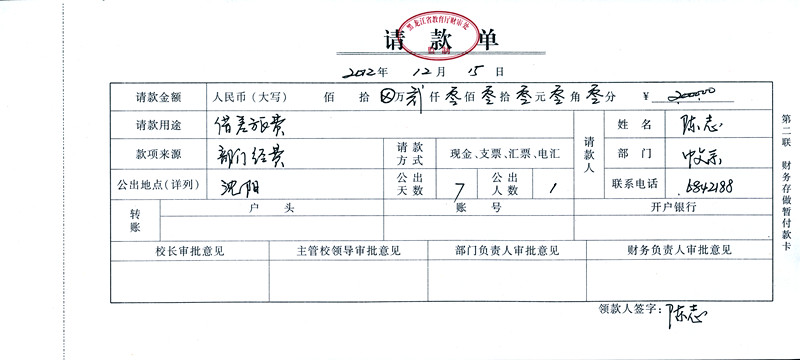 黑龙江省教育厅财审处
监制
请款单
2012年 12月 15日
请款金额 人民币（大写） 佰 拾 ⊗万 贰仟 零佰 零拾 零元 零角 零分 ￥ 2000.00
请款用途 借差旅费 请款人 姓名 陈志
款项来源 部门经费 请款方式 现金、支票、汇票、电汇 部门 中文系
公出地点（详列） 沈阳 公出天数 7 公出人数 1 联系电话 6842188
转账 户头 账号 开户银行
校长审批意见 主管校领导审批意见 部门负责人审批意见 财务负责人审批意见
领款人签字：陈志
第二联 财务存做暂付款卡